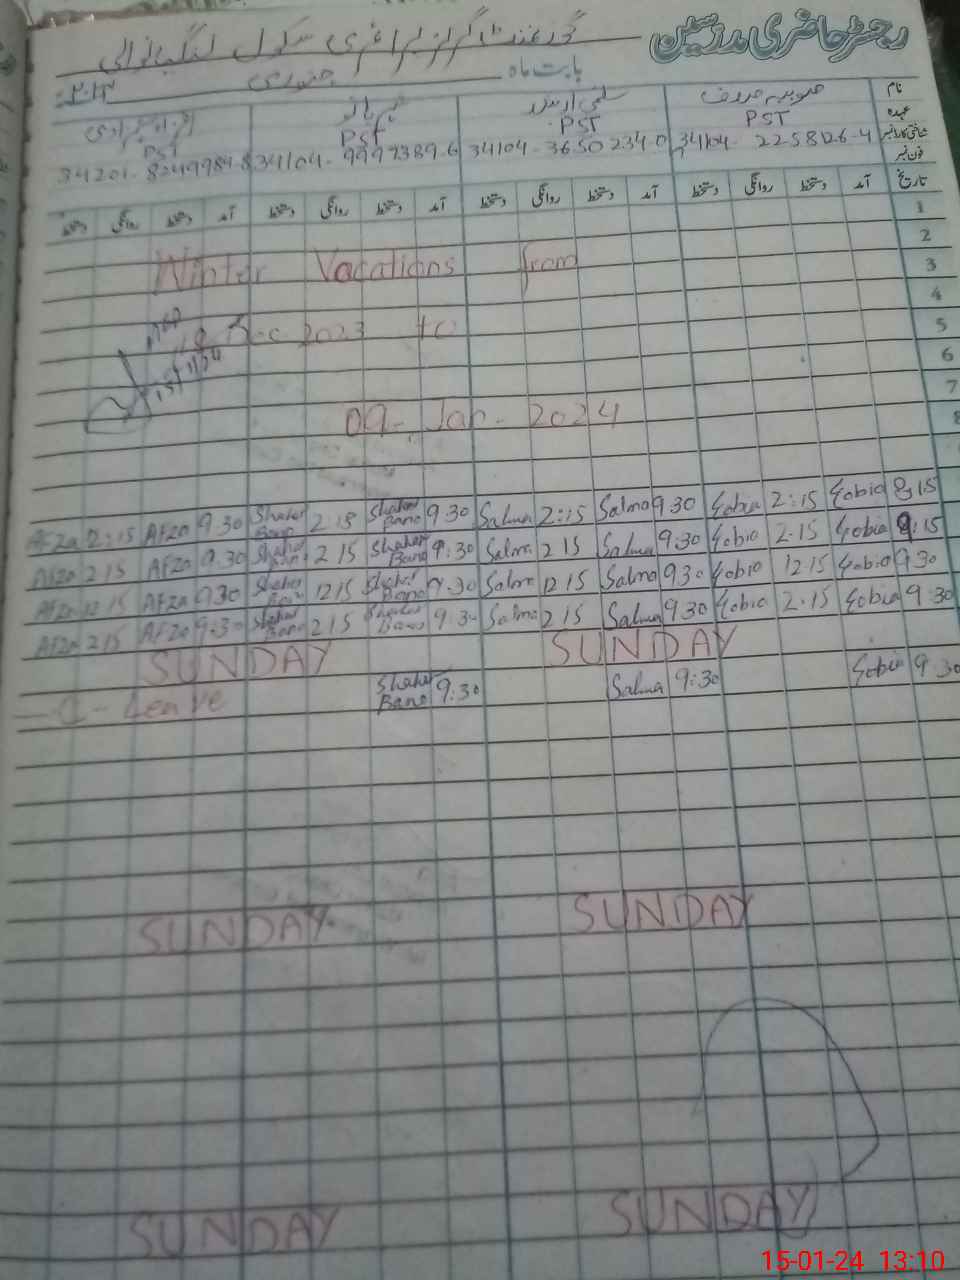 رجسٹر حاضری مدرسین
گورنمنٹ گرلز پرائمری سکول
بابت ماہ جنوری
نام
عہدہ PST PST PST PST
شناختی کارڈ نمبر 34104-2258126-4 34104-3650234-0 34104-9997389-6 34201-8249984-8
فون نمبر
تاریخ آمد دستخط روانگی دستخط آمد دستخط روانگی دستخط آمد دستخط روانگی دستخط آمد دستخط روانگی دستخط
1
2
Winter Vacations from 3
4
Dec 2023 to 5
6
7
09-Jan-2024 8
Afza 2:15 Afza 9.30 Shaher Bano 2 15 Shaher Bano 9 30 Salma 2:15 Salma 9 30 Sobia 2:15 Sobia 9:15
Afza 2 15 Afza 9.30 Shaher Bano 2 15 Shaher Bano 9:30 Salma 2 15 Salma 9:30 Sobia 2.15 Sobia 9:15
Afza 12 15 Afza 9 30 Shaher Bano 12 15 Shaher Bano 9.30 Salma 12 15 Salma 9 30 Sobia 12.15 Sobia 9.30
Afza 2 15 Afza 9:30 Shaher Bano 2 15 Shaher Bano 9:30 Salma 2 15 Salma 9 30 Sobia 2.15 Sobia 9:30
SUNDAY SUNDAY
Leave Shaher Bano 9:30 Salma 9:30 Sobia 9:30
SUNDAY SUNDAY
SUNDAY SUNDAY
15-01-24 13:10